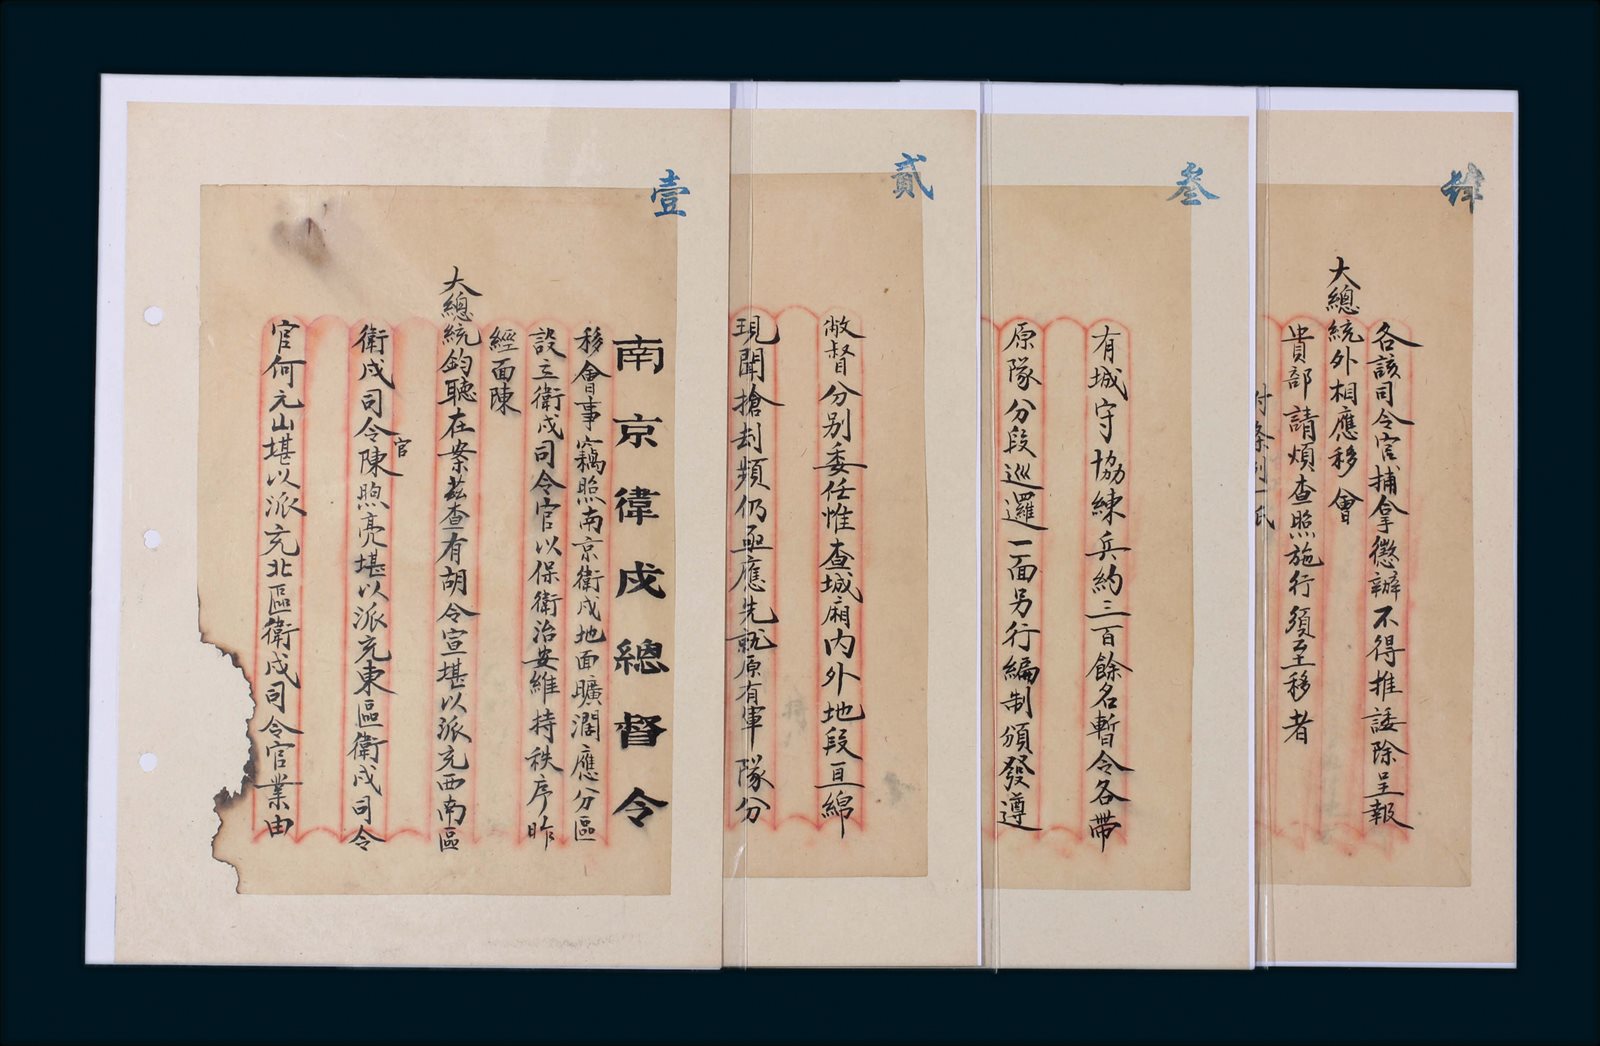 壹
南京衛戍總督令
移會事竊照南京衛戍地面曠濶應分區
設立衛戍司令官以保衛治安維持秩序昨
經面陳
大總統鈞聽在案茲查有胡令宣堪以派充西南區
衛戍司令官陳煦亮堪以派充東區衛戍司令
官何元山堪以派充北區衛戍司令官業由
貳
敝督分别委任惟查城廂内外地段亘綿
現聞搶刦頻仍亟應先就原有軍隊分
叁
有城守協練兵約三百餘名暫令各帶
原隊分段巡邏一面另行編制頒發遵
肆
各該司令官捕拿懲辦不得推諉除呈報
大總統外相應移會
貴部請煩查照施行須至移者